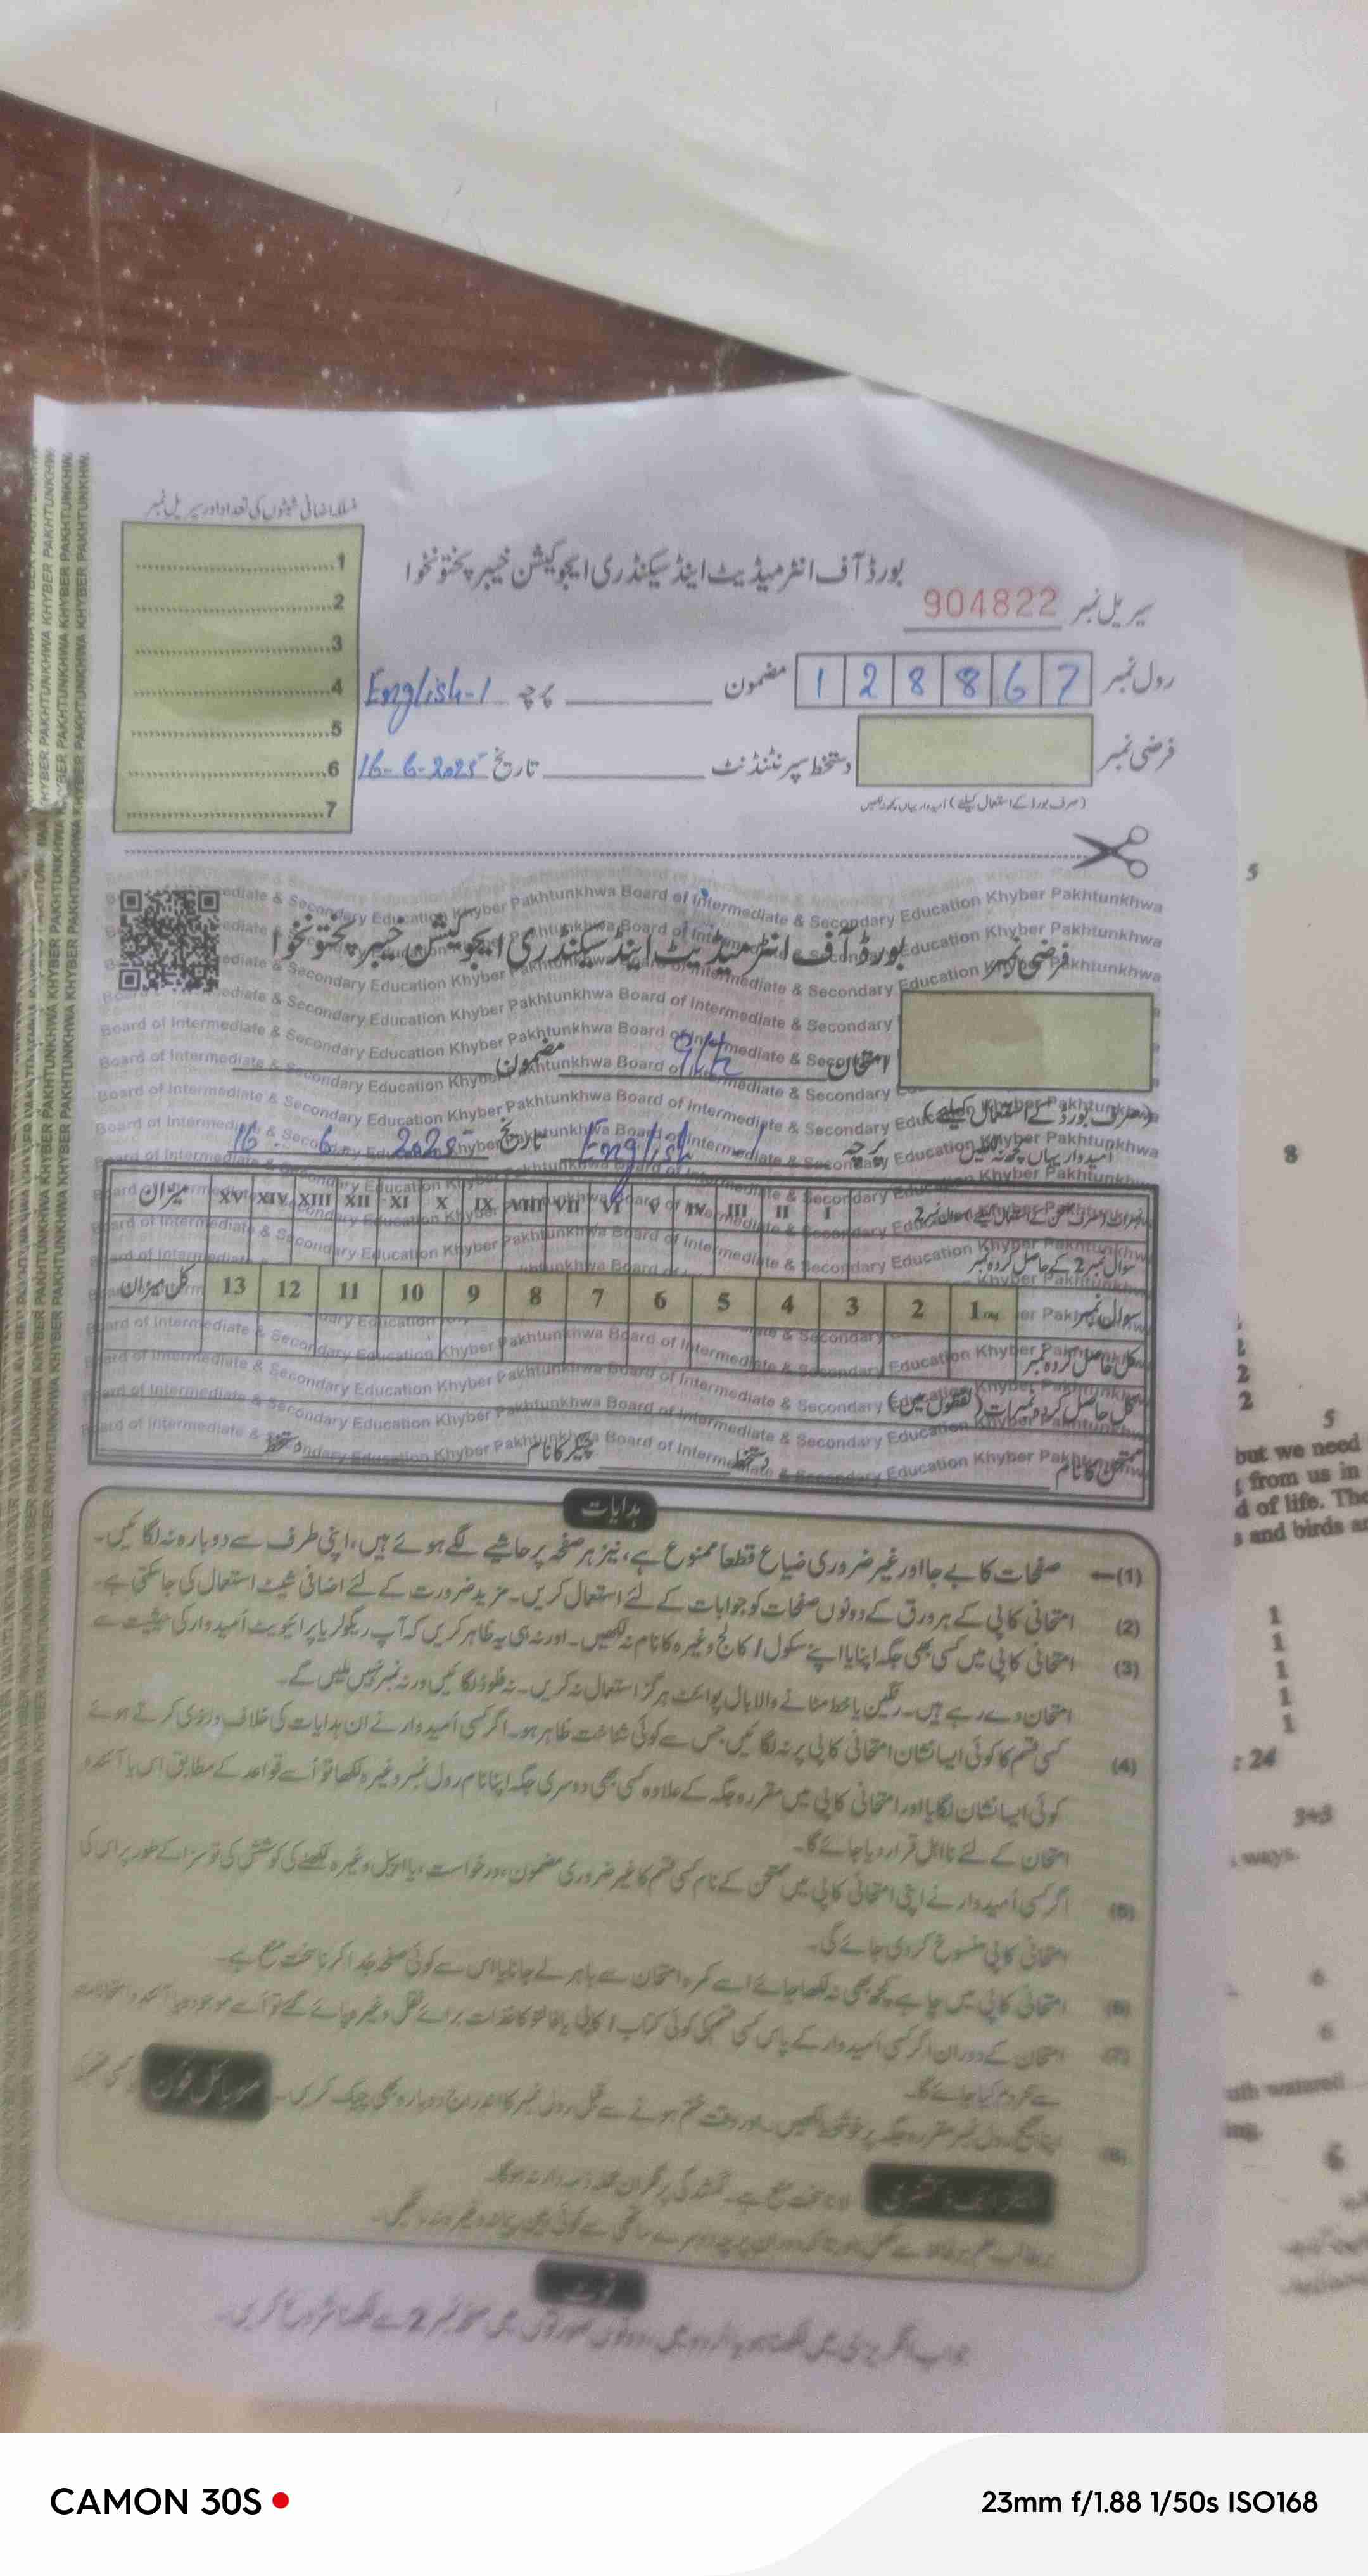 منسلکہ اضافی شیٹوں کی تعداد اور سیریل نمبر
1
2
3
4
5
6
7
بورڈ آف انٹرمیڈیٹ اینڈ سیکنڈری ایجوکیشن خیبر پختونخوا
سیریل نمبر 904822
رول نمبر 1 2 8 8 6 7 مضمون پرچہ English-1
فرضی نمبر دستخط سپرنٹنڈنٹ تاریخ 16-6-2025
(صرف بورڈ کے استعمال کیلئے) امیدوار یہاں کچھ نہ لکھیں
Board of Intermediate & Secondary Education Khyber Pakhtunkhwa
KHYBER PAKHTUNKHWA
بورڈ آف انٹرمیڈیٹ اینڈ سیکنڈری ایجوکیشن خیبر پختونخوا
فرضی نمبر
امتحان 9th مضمون
(صرف بورڈ کے استعمال کیلئے)
امیدوار یہاں کچھ نہ لکھیں
پرچہ English تاریخ 16 6 2025
سوال نمبر 2 I II III IV V VI VII VIII IX X XI XII XIII XIV XV میزان
سوال نمبر 2 کے حاصل کردہ نمبر
سوال نمبر 1 2 3 4 5 6 7 8 9 10 11 12 13 کل میزان
کل حاصل کردہ نمبر
کل حاصل کردہ نمبرات (لفظوں میں)
ممتحن کا نام دستخط چیکر کا نام دستخط
ہدایات
(1) صفحات کا بے جا اور غیر ضروری ضیاع قطعاً ممنوع ہے، نیز ہر صفحہ پر حاشیے لگے ہوئے ہیں، اپنی طرف سے دوبارہ نہ لگائیں۔
(2) امتحانی کاپی کے ہر ورق کے دونوں صفحات کو جوابات کے لئے استعمال کریں۔ مزید ضرورت کے لئے اضافی شیٹ استعمال کی جا سکتی ہے۔
(3) امتحانی کاپی میں کسی بھی جگہ اپنا یا اپنے سکول / کالج وغیرہ کا نام نہ لکھیں۔ اور نہ ہی یہ ظاہر کریں کہ آپ ریگولر یا پرائیویٹ اُمیدوار کی حیثیت سے
امتحان دے رہے ہیں۔ رنگین یا خط مٹانے والا بال پوائنٹ ہرگز استعمال نہ کریں۔ نہ فلوڈ لگائیں ورنہ نمبر نہیں ملیں گے۔
(4) کسی قسم کا کوئی ایسا نشان امتحانی کاپی پر نہ لگائیں جس سے کوئی شناخت ظاہر ہو۔ اگر کسی اُمیدوار نے ان ہدایات کی خلاف ورزی کرتے ہوئے
کوئی ایسا نشان لگایا اور امتحانی کاپی میں مقررہ جگہ کے علاوہ کسی بھی دوسری جگہ اپنا نام رول نمبر وغیرہ لکھا تو اُسے قواعد کے مطابق اس یا آئندہ
امتحان کے لئے نااہل قرار دیا جائے گا۔
(5) اگر کسی اُمیدوار نے اپنی امتحانی کاپی میں ممتحن کے نام کسی قسم کا غیر ضروری مضمون، درخواست، یا اپیل وغیرہ لکھنے کی کوشش کی تو سزا کے طور پر اس کی
امتحانی کاپی منسوخ کر دی جائے گی۔
(6) امتحانی کاپی میں چاہے کچھ بھی نہ لکھا جائے اسے کمرہ امتحان سے باہر لے جانا یا اس سے کوئی صفحہ جدا کرنا سخت منع ہے۔
(7) امتحان کے دوران اگر کسی اُمیدوار کے پاس کسی قسم کی کوئی کتاب / کاپی یا
سے محروم کیا جائے گا۔
موبائل فون
نوٹ
5
8
2
2
5
but we need
from us in
d of life. The
s and birds ar
1
1
1
1
1
: 24
3+3
ways.
6
6
6
CAMON 30S
23mm f/1.88 1/50s ISO168